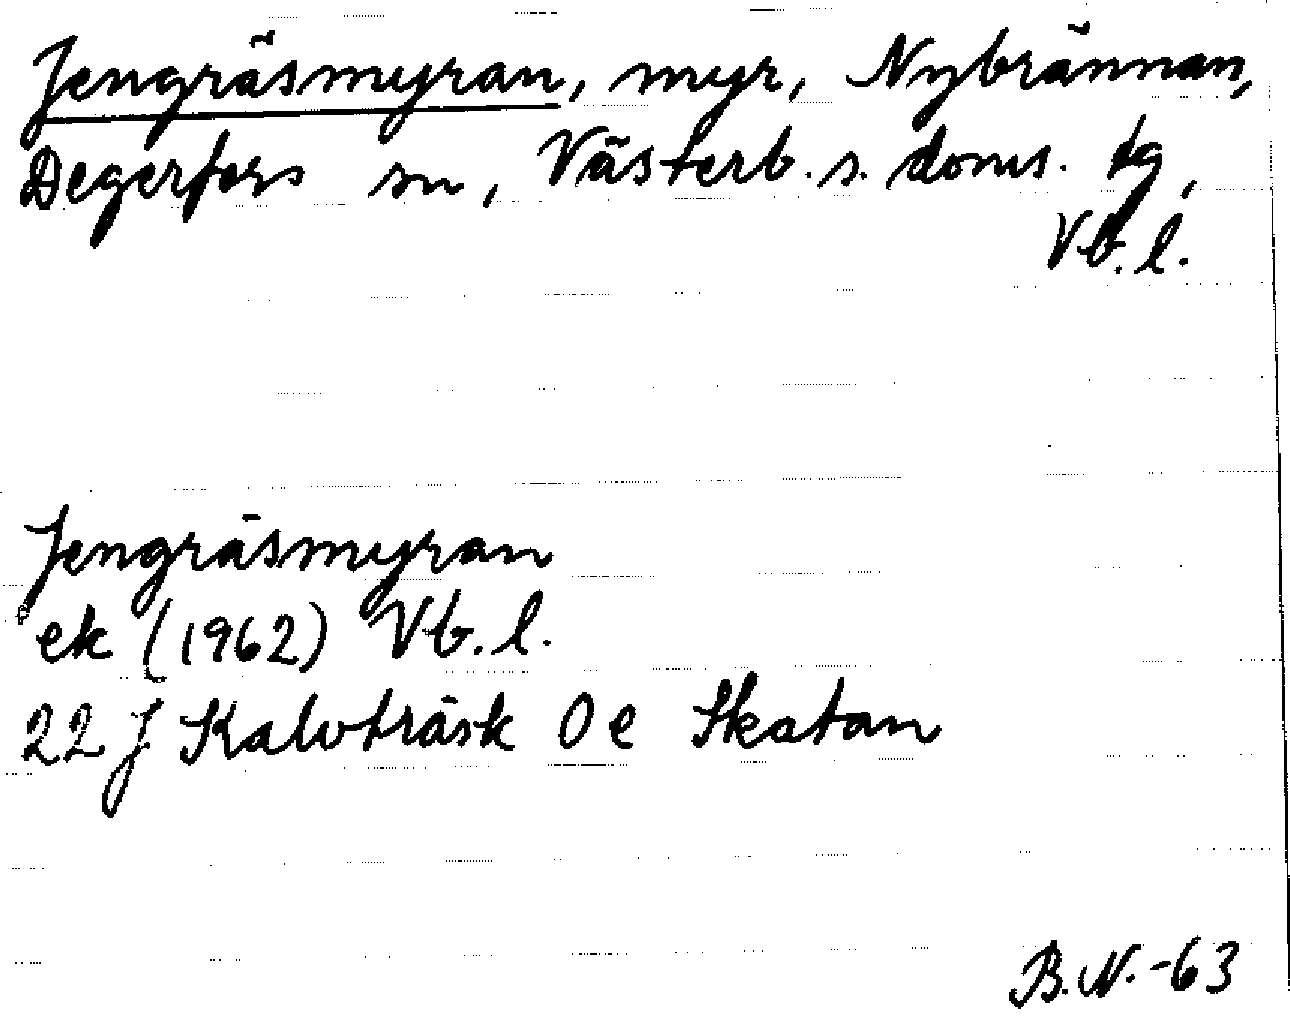 Jengräsmyran, myr, Nybrännan,
Degerfors sn, Västerb. s. doms. tg,
Vb. l.
Jengräsmyran
ek (1962) Vb. l.
22 J Kalvträsk 0 e Skatan
B.N.-63